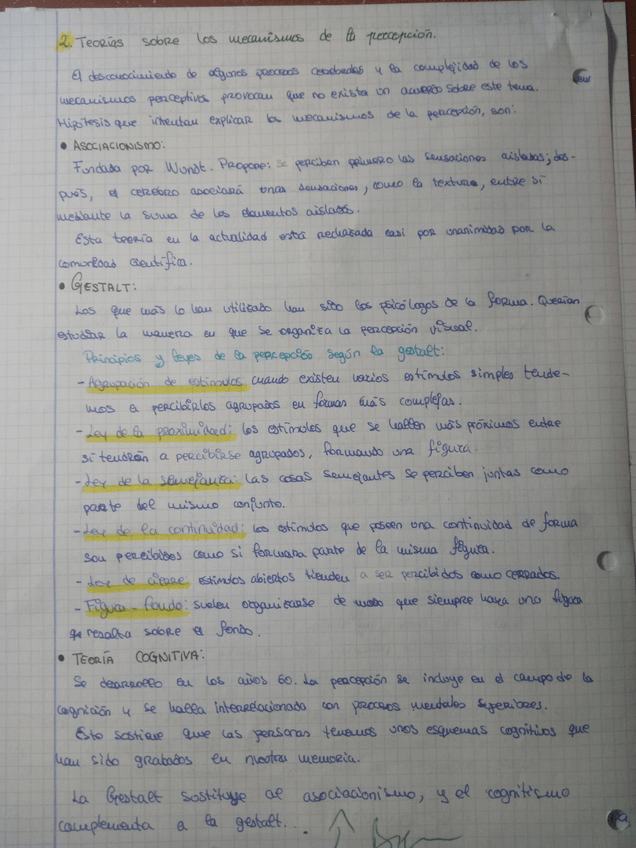 2. Teorías sobre los mecanismos de la percepción.
El desconocimiento de algunos procesos cerebrales y la complejidad de los
mecanismos perceptivos provocan que no exista un acuerdo sobre este tema.
Hipótesis que intentan explicar los mecanismos de la percepción, son:
• ASOCIACIONISMO:
Fundada por Wundt. Propone: se perciben primero las sensaciones aisladas; des-
pués, el cerebro asociará unas sensaciones, como la textura, entre sí
mediante la suma de los elementos aislados.
Esta teoría en la actualidad está rechazada casi por unanimidad por la
comunidad científica.
• GESTALT:
Los que más lo han utilizado han sido los psicólogos de la forma. Querían
estudiar la manera en que se organiza la percepción visual.
Principios y leyes de la percepción según la gestalt:
- Agrupación de estímulos cuando existen varios estímulos simples tende-
mos a percibirlos agrupados en formas más complejas.
- Ley de la proximidad: los estímulos que se hallen más próximos entre
sí tendrán a percibirse agrupados, formando una figura.
- Ley de la semejanza: las cosas semejantes se perciben juntas como
parte del mismo conjunto.
- Ley de la continuidad: los estímulos que poseen una continuidad de forma
son percibidos como si formara parte de la misma figura.
- Ley de cierre estímulos abiertos tienden a ser percibidos como cerrados.
- Figura - fondo: suelen organizarse de modo que siempre haya una figura
q resalta sobre el fondo.
• TEORÍA COGNITIVA:
Se desarrolló en los años 60. La percepción se incluye en el campo de la
cognición y se halla interrelacionada con procesos mentales superiores.
Esto sostiene que las personas tenemos unos esquemas cognitivos que
han sido grabados en nuestra memoria.
La Gestalt sustituye al asociacionismo, y el cognitismo
complementa a la gestalt...